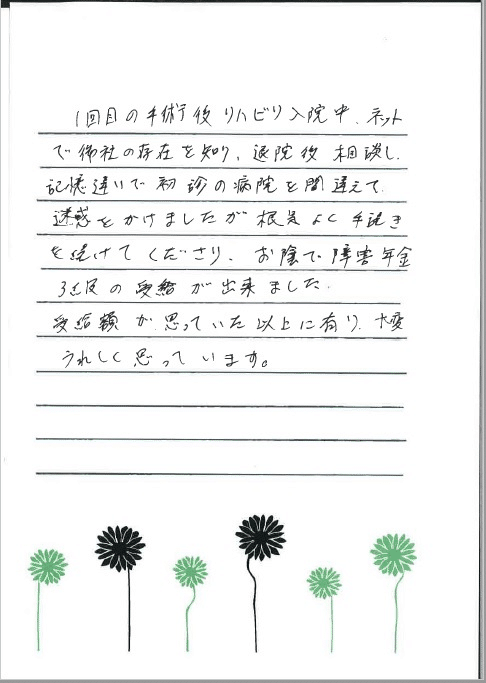 1回目の手術後リハビリ入院中、ネット
で御社の存在を知り、退院後相談し、
記憶違いで初診の病院を間違えて
迷惑をかけましたが根気よく手続き
を続けてくださり、お陰で障害年金
3級の受給が出来ました。
受給額が思っていた以上に有り、大変
うれしく思っています。